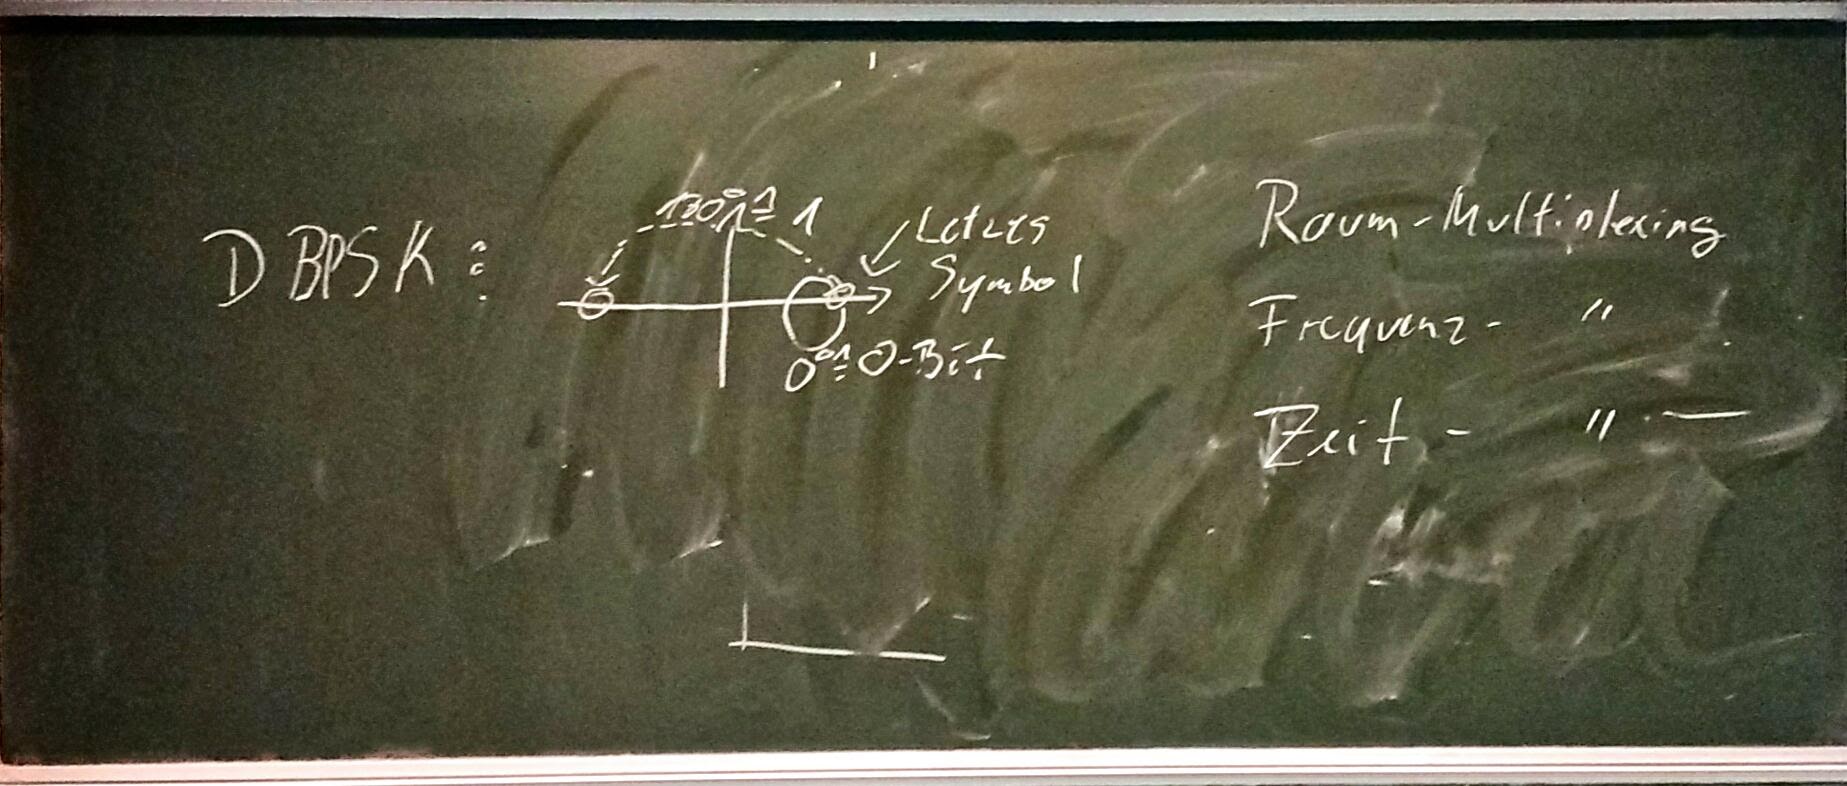 DBPSK:
180° ≙ 1
Letztes
Symbol
0° ≙ 0-Bit
Raum-Multiplexing
Frequenz- "
Zeit - " -